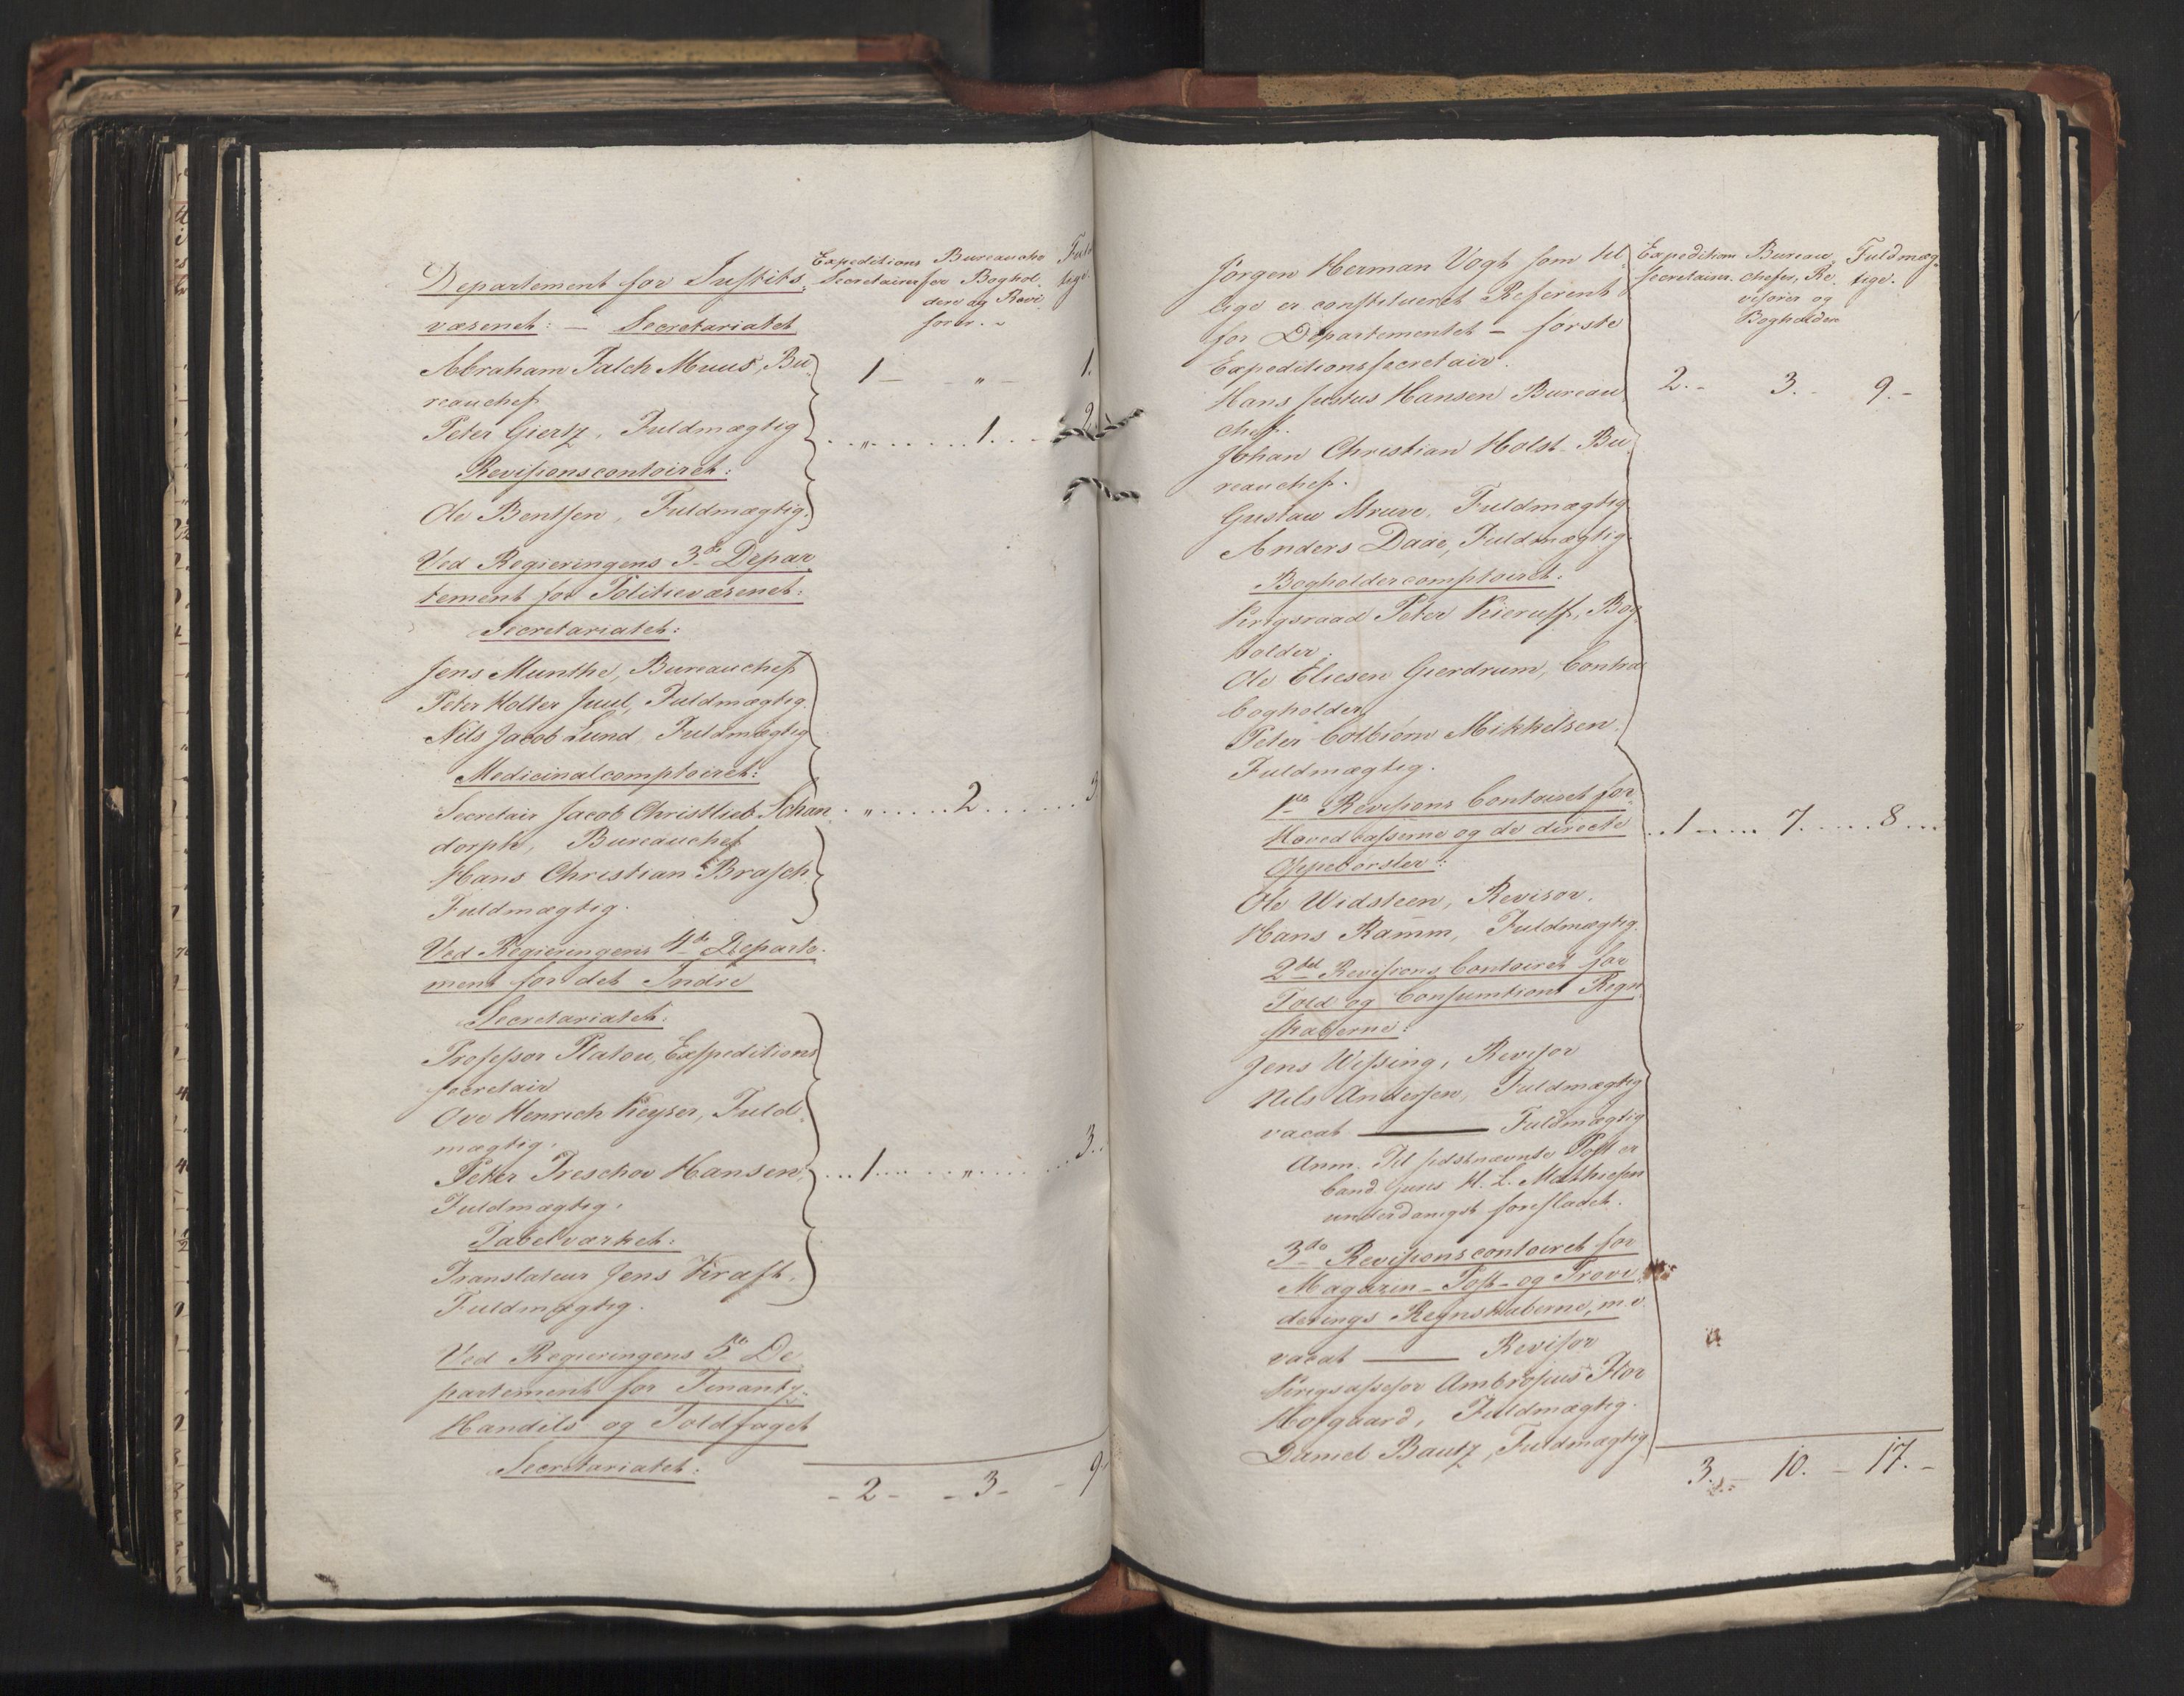 Departement for Justits-
væsenet: — Secretariatet
Expeditions Bureauche
Secretairer fer Boghol-
dere og Revi
sorer. -
Fuld
tige.
Abraham Falch Muus, Bu-
reauchef
1 — „ — 1.
Peter Giertz, Fuldmægtig
„ 1. 2
Revisionscontoiret:
Ole Bentsen, Fuldmægtig.
Ved Regieringens 3de Depar
tement for Politievæsenet:
Secretariatet:
Jens Munthe, Bureauchef
Peter Holter Juul, Fuldmægtig.
Nils Jacob Lund Fuldmægtig
Medicinalcomptoiret:
Secretair Jacob Christlieb Schan
„ 2 3
dorph, Bureauchef
Hans Christian Brasch
Fuldmægtig.
Ved Regieringens 4de Departe-
ment for det Indre
Secretariatet.
Professor Platou, Expeditions
secretair
Ove Henrich Keyser, Fuld
mægtig.
Peter Treschow Hansen,
1 „ 3.
Fuldmægtig.
Tabelværket:
Translateur Jens Kraft,
Fuldmægtig.
Ved Regieringens 5te De
partement for Finantz-
Handels- og Toldfaget
Secretariatet:
- 2 - - 3 - - 9
Jörgen Herman Vogt som til-
lige er constitueret Referent
for Departementet — förste
Expeditionssecretair.
Expeditions Bureau Fuldmæg-
secretairer. chefer, Re- tige.
visorer og
Bogholdere
Hans Justus Hansen Bureau
chef.
2. - 3. - 9. -
Johan Christian Holst - Bu
reauchef.
Gustav Struve, Fuldmægtig
Anders Daae, Fuldmægtig.
Bogholdercomptoiret:
Krigsraad Peter Kierulf, Bog
holder.
Ole Eliesen Gierdrum, Contra
bogholder
Peter Colbiørn Mikkelsen.
Fuldmægtig.
1ste Revisions Contoiret for
Hovedcasserne og de directe
1 7. 8
Oppebørsler:
Ole Widsteen, Revisor.
Hans Ramm, Fuldmægtig.
2det Revisions Contoiret for
Told og Consumtions Regn
skaberne:
Jens Wissing, Revisor
Nils Andersen, Fuldmægtig
vacat — Fuldmægtig
Anm. Til sidstnævnte Post er
Cand. juris H. L. Mathiesen
underdanigst foreslaaet.
3die Revisionscontoiret for
Magazin- Post- og Provi
derings Regnskaberne, m. v.
vacat — Revisor
Krigsassessor Ambrosius Flor
Hofgaard, Fuldmægtig.
Daniel Bautz, Fuldmægtig
3. - 10. - 17. -